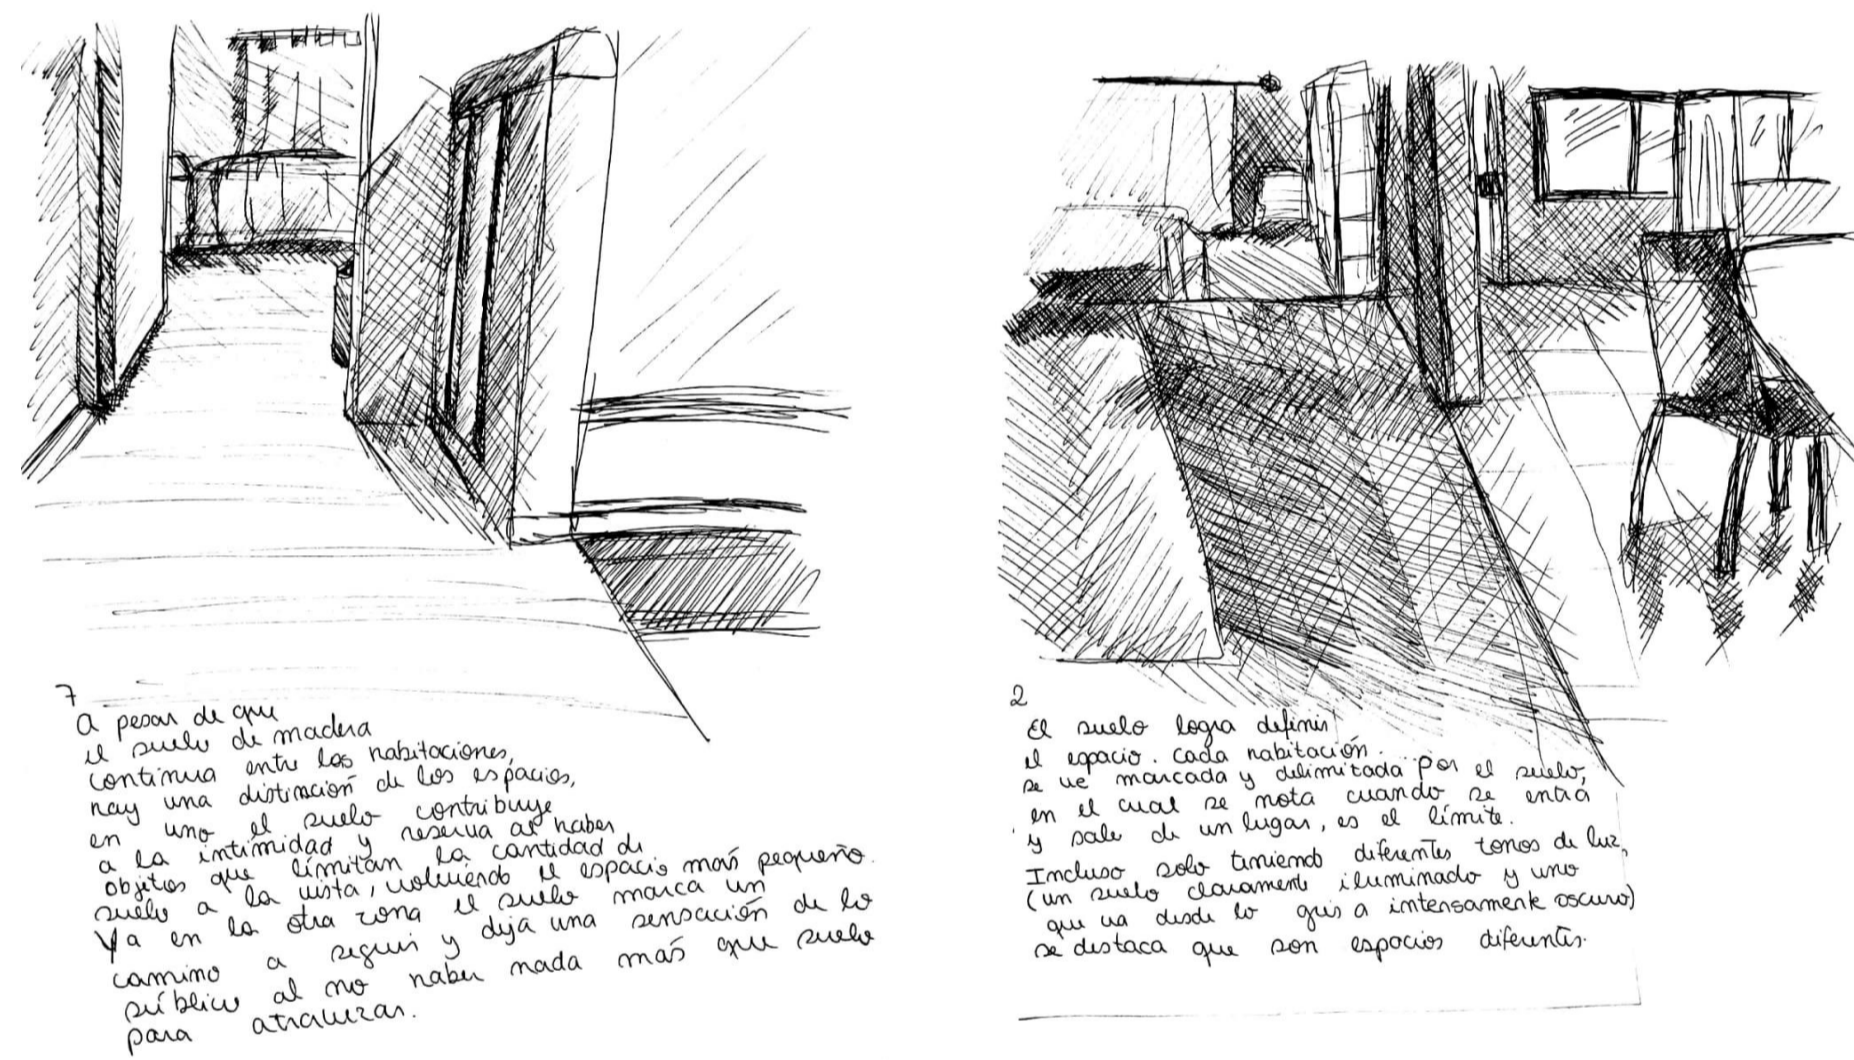 7
A pesar de que
el suelo de madera
continua entre las habitaciones,
hay una distinción de los espacios,
en uno el suelo contribuye
a la intimidad y reserva al haber
objetos que límitan la cantidad de
suelo a la vista, volviendo el espacio más pequeño.
Ya en la otra zona el suelo marca un
camino a seguir y deja una sensación de lo
público al no haber nada más que suelo
para atravezar.
2
El suelo logra definir
el espacio. Cada habitación
se ve marcada y delimitada por el suelo,
en el cual se nota cuando se entra
y sale de un lugar, es el límite.
Incluso solo teniendo diferentes tonos de luz,
(un suelo claramente iluminado y uno
que va desde lo gris a intensamente oscuro)
se destaca que son espacios diferentes.